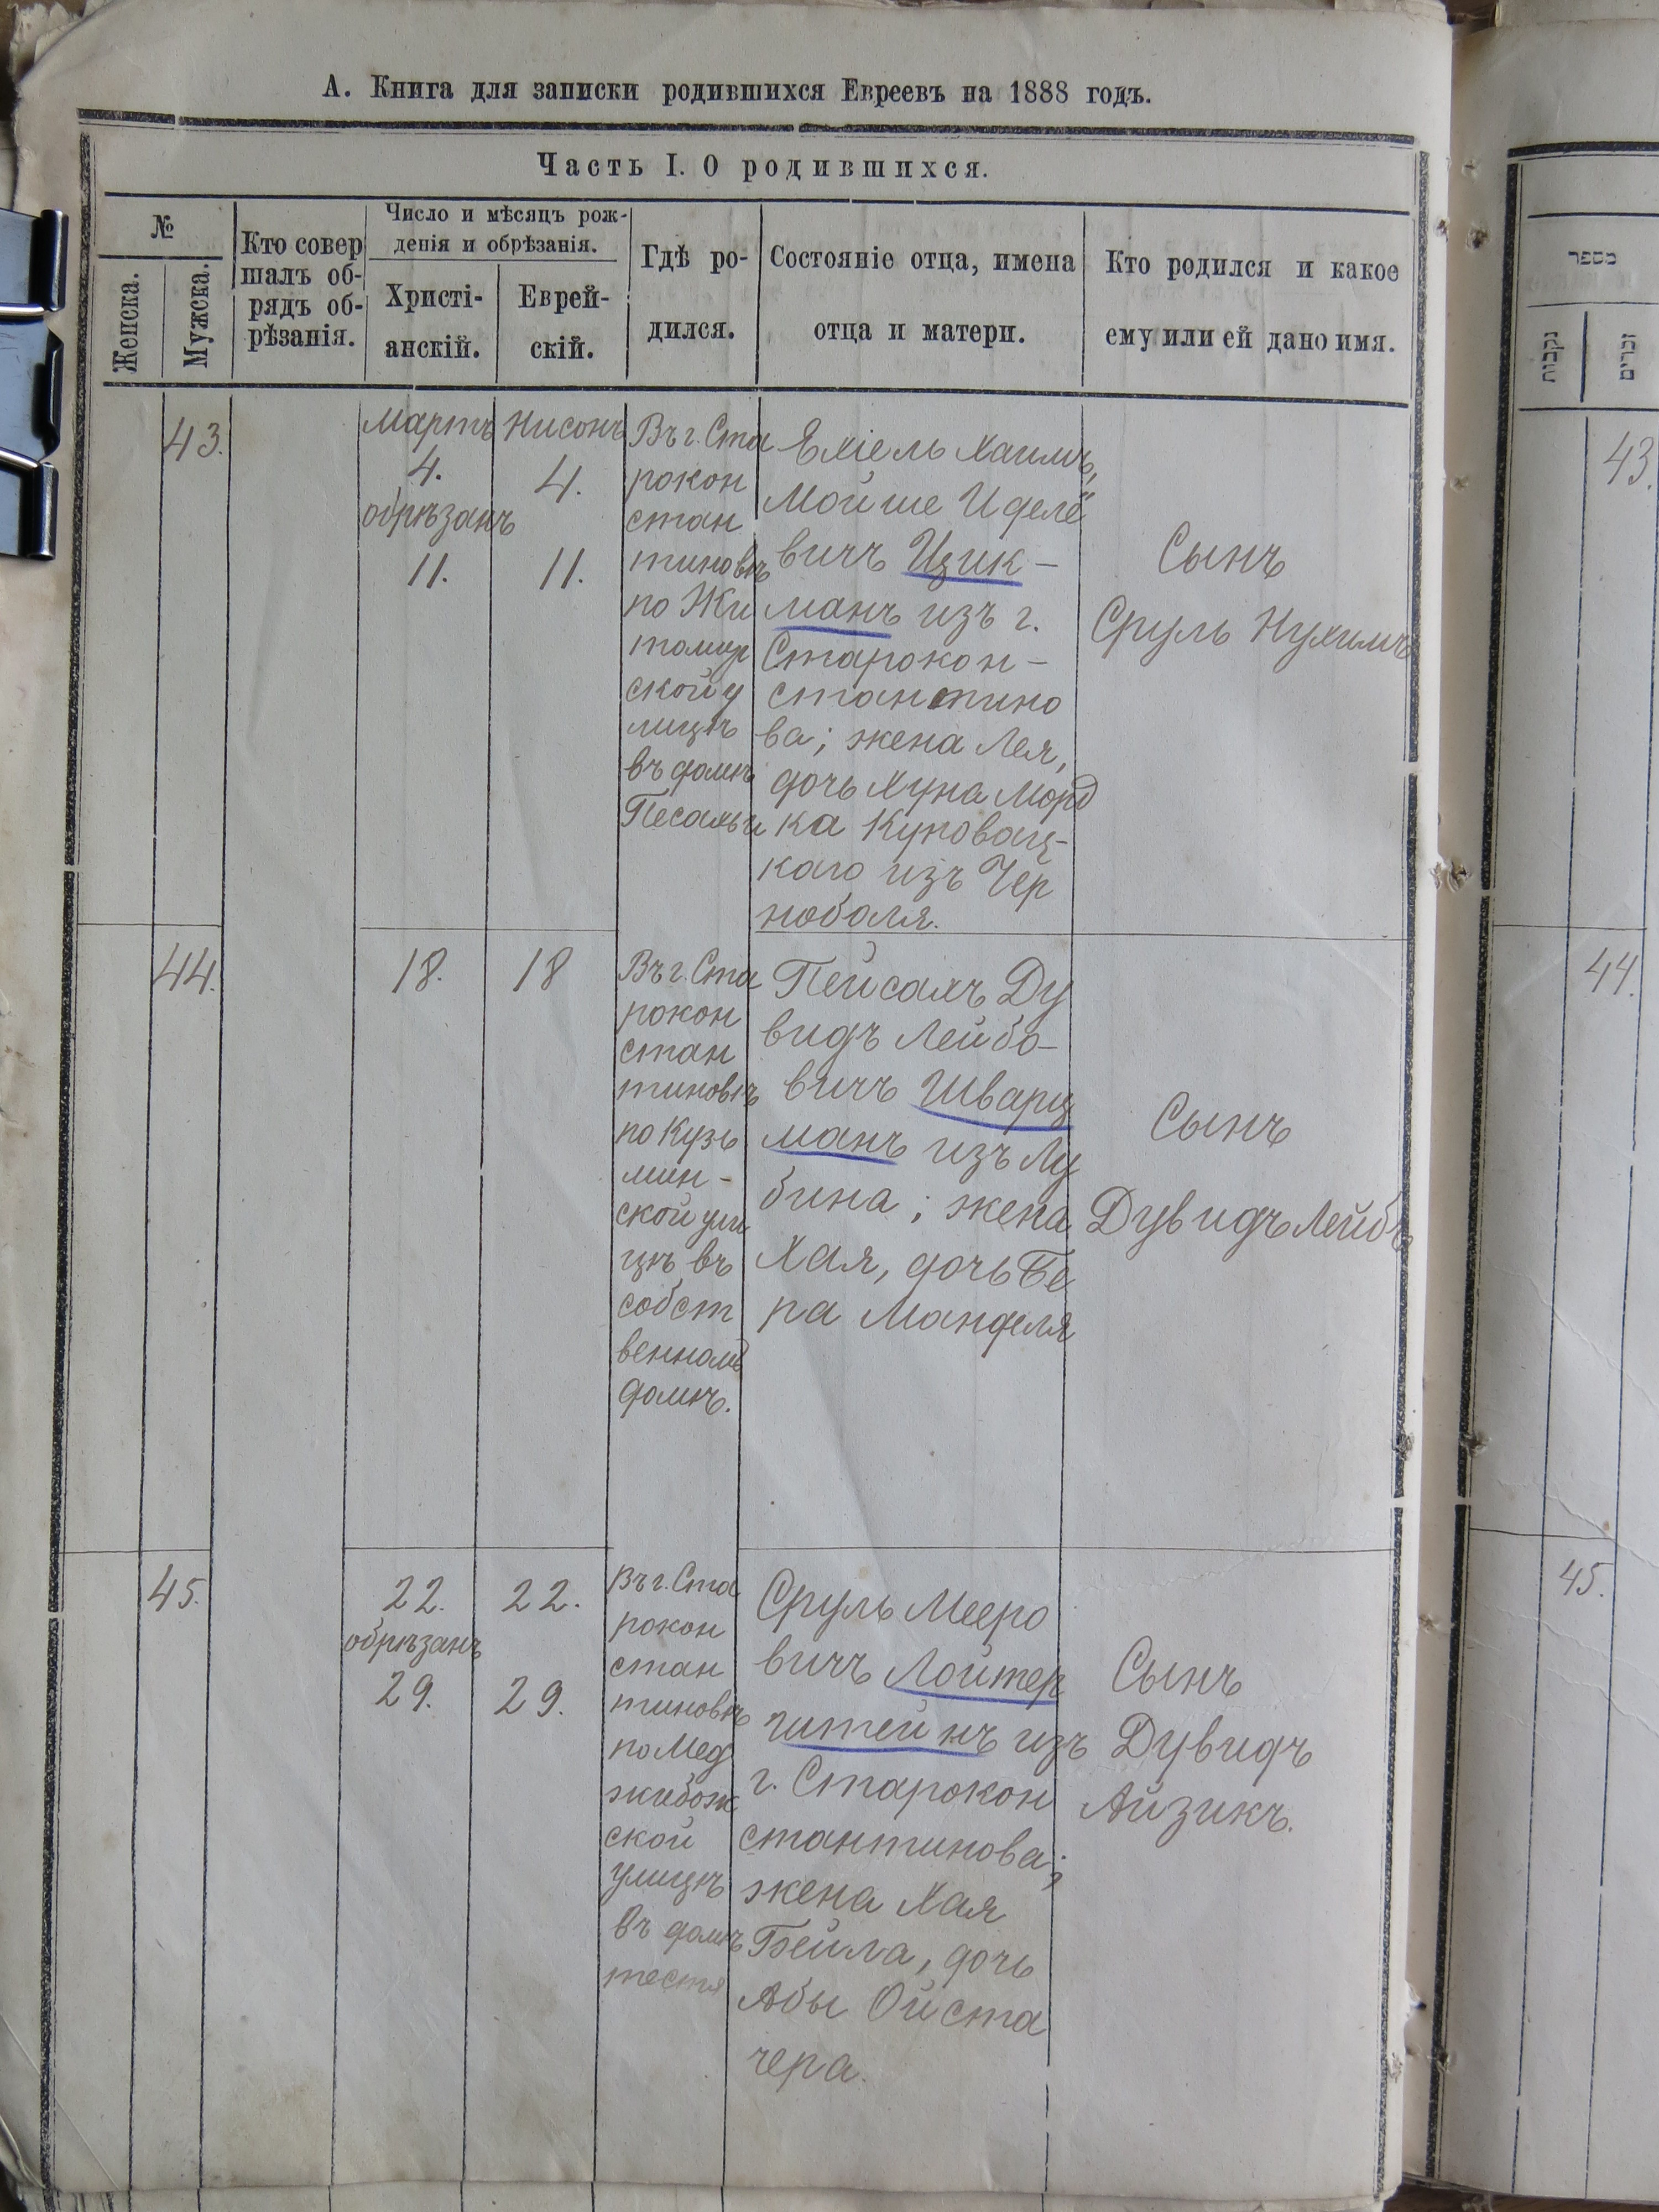 А. Книга для записки родившихся Евреевъ на 1888 годъ.
Часть I. О родившихся.
№
Женска.
Мужска.
Кто совер
шалъ об-
рядъ об-
рѣзанія.
Число и мѣсяцъ рож-
денія и обрѣзанія.
Христі-
анскій.
Еврей-
скій.
Гдѣ ро-
дился.
Состояніе отца, имена
отца и матери.
Кто родился и какое
ему или ей дано имя.
43.
Мартъ
4.
обрѣзанъ
11.
Нисонъ
4.
11.
Въ г. Ста
рокон
стан
тиновѣ
по Жи
томир
ской у
лицѣ
въ домѣ
Ехіель Хаимъ,
Мойше Иделё
вичъ Цзик-
манъ изъ г.
Старокон-
стантино
ва; жена Лея,
дочь Хуна Морд
ка Куповац-
каго изъ Чер
ноболя.
Сынъ
Сруль Нухимъ
44.
18.
18
Въ г. Ста
рокон
стан
тиновѣ
по Кузь
мин-
ской ули
цѣ въ
собст
венномъ
домѣ.
Пейсахъ Ду
видъ Лейбо-
вичъ Шварц
манъ изъ Лу
бина; жена
Хая, дочь Бе
ра Манделя
Сынъ
Дувидъ Лейбъ
45.
22.
обрѣзанъ
29.
22.
29.
Въ г. Ста
рокон
стан
тиновѣ
по Мед
жибож
ской
улицѣ
въ домѣ
тестя
Сруль Мееро
вичъ Лойтер
штейнъ изъ
г. Старокон
стантинова;
жена Хая
Бейла, дочь
Абы Ойста
чера.
Сынъ
Дувидъ
Айзикъ.
מספר
נקבות
זכרים
43.
44.
45.